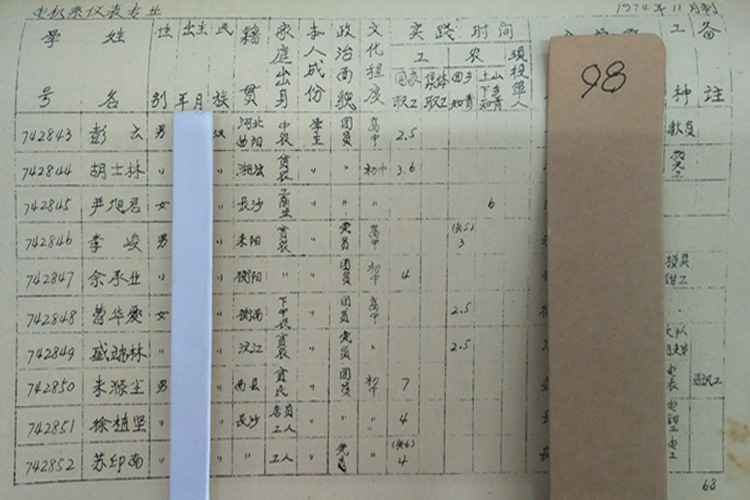 电机系仪表专业 1974年11月制
学号 姓名 性别 出生年月 民族 籍贯 家庭出身 本人成份 政治面貌 文化程度 实践时间 工 农 国家职工 集体职工 回乡知青 上山下乡知青 现役军人 工种 备註
98
742843 彭云 男 汉 河北曲阳 中农 学生 团员 高中 2.5 教员
742844 胡士林 〃 〃 湘潭 贫农 〃 〃 初中 3.6
742845 尹旭君 女 〃 长沙 〃 〃 〃 6
742846 李峻 男 〃 耒阳 贫农 〃 党员 高中 3
742847 余承业 〃 〃 〃 〃 团员 初中 4 模具钳工
742848 曹华爱 女 〃 下中农 〃 团员 高中 2.5
742849 盛端林 〃 〃 沅江 贫农 〃 党员 〃 2.5
742850 男 〃 南县 贫民 〃 团员 初中 7 电表 通讯工
742851 徐植坚 〃 〃 长沙 店员工人 〃 〃 〃 4 电钳工
742852 苏印南 〃 〃 〃 工人 〃 党员 〃 4 电工
68